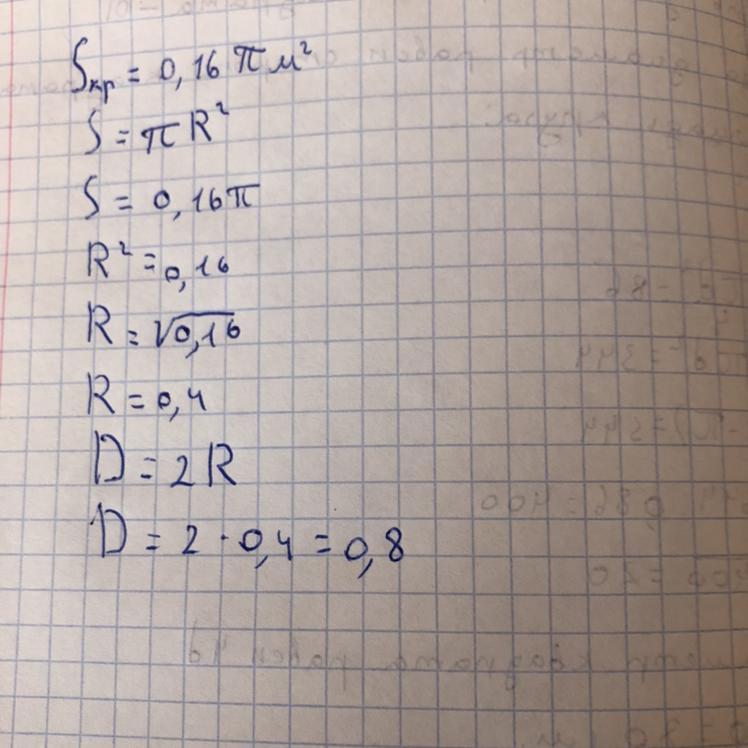 Sкр = 0,16 π м²
S = π R²
S = 0,16π
R² = 0,16
R = √0,16
R = 0,4
D = 2R
D = 2 · 0,4 = 0,8